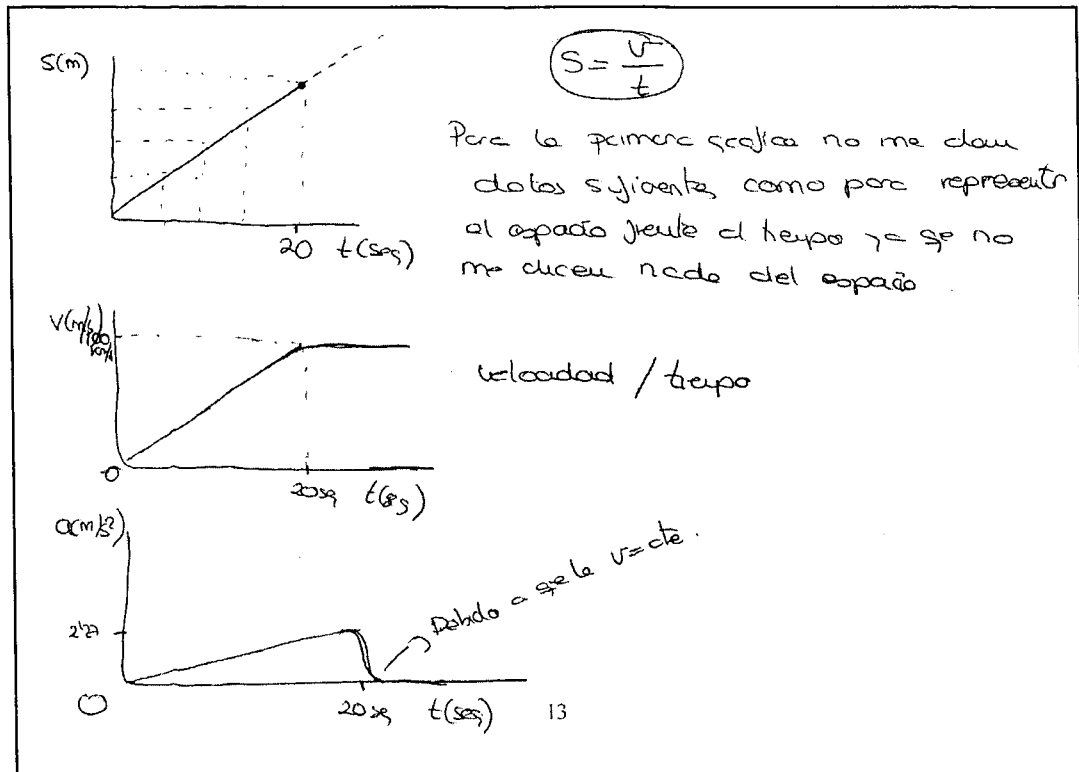 S(m)
20 t(seg)
S = v / t
Para la primera grafica no me dan
datos suficientes como para representr
el espacio frente al tiempo ya que no
me dicen nada del espacio.
V(m/s)
0
20sg t(sg)
velocidad / tiempo
a(m/s²)
2'27
0
20 sg t(seg)
Debido a que la v=cte.
13